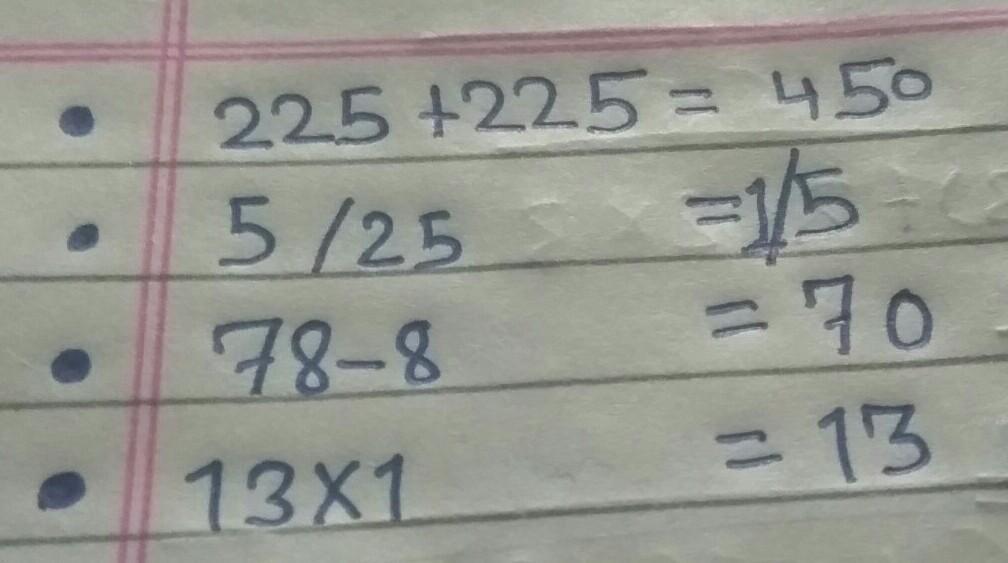 • 225 + 225 = 450
• 5 / 25 = 1/5
• 78 - 8 = 70
• 13 x 1 = 13